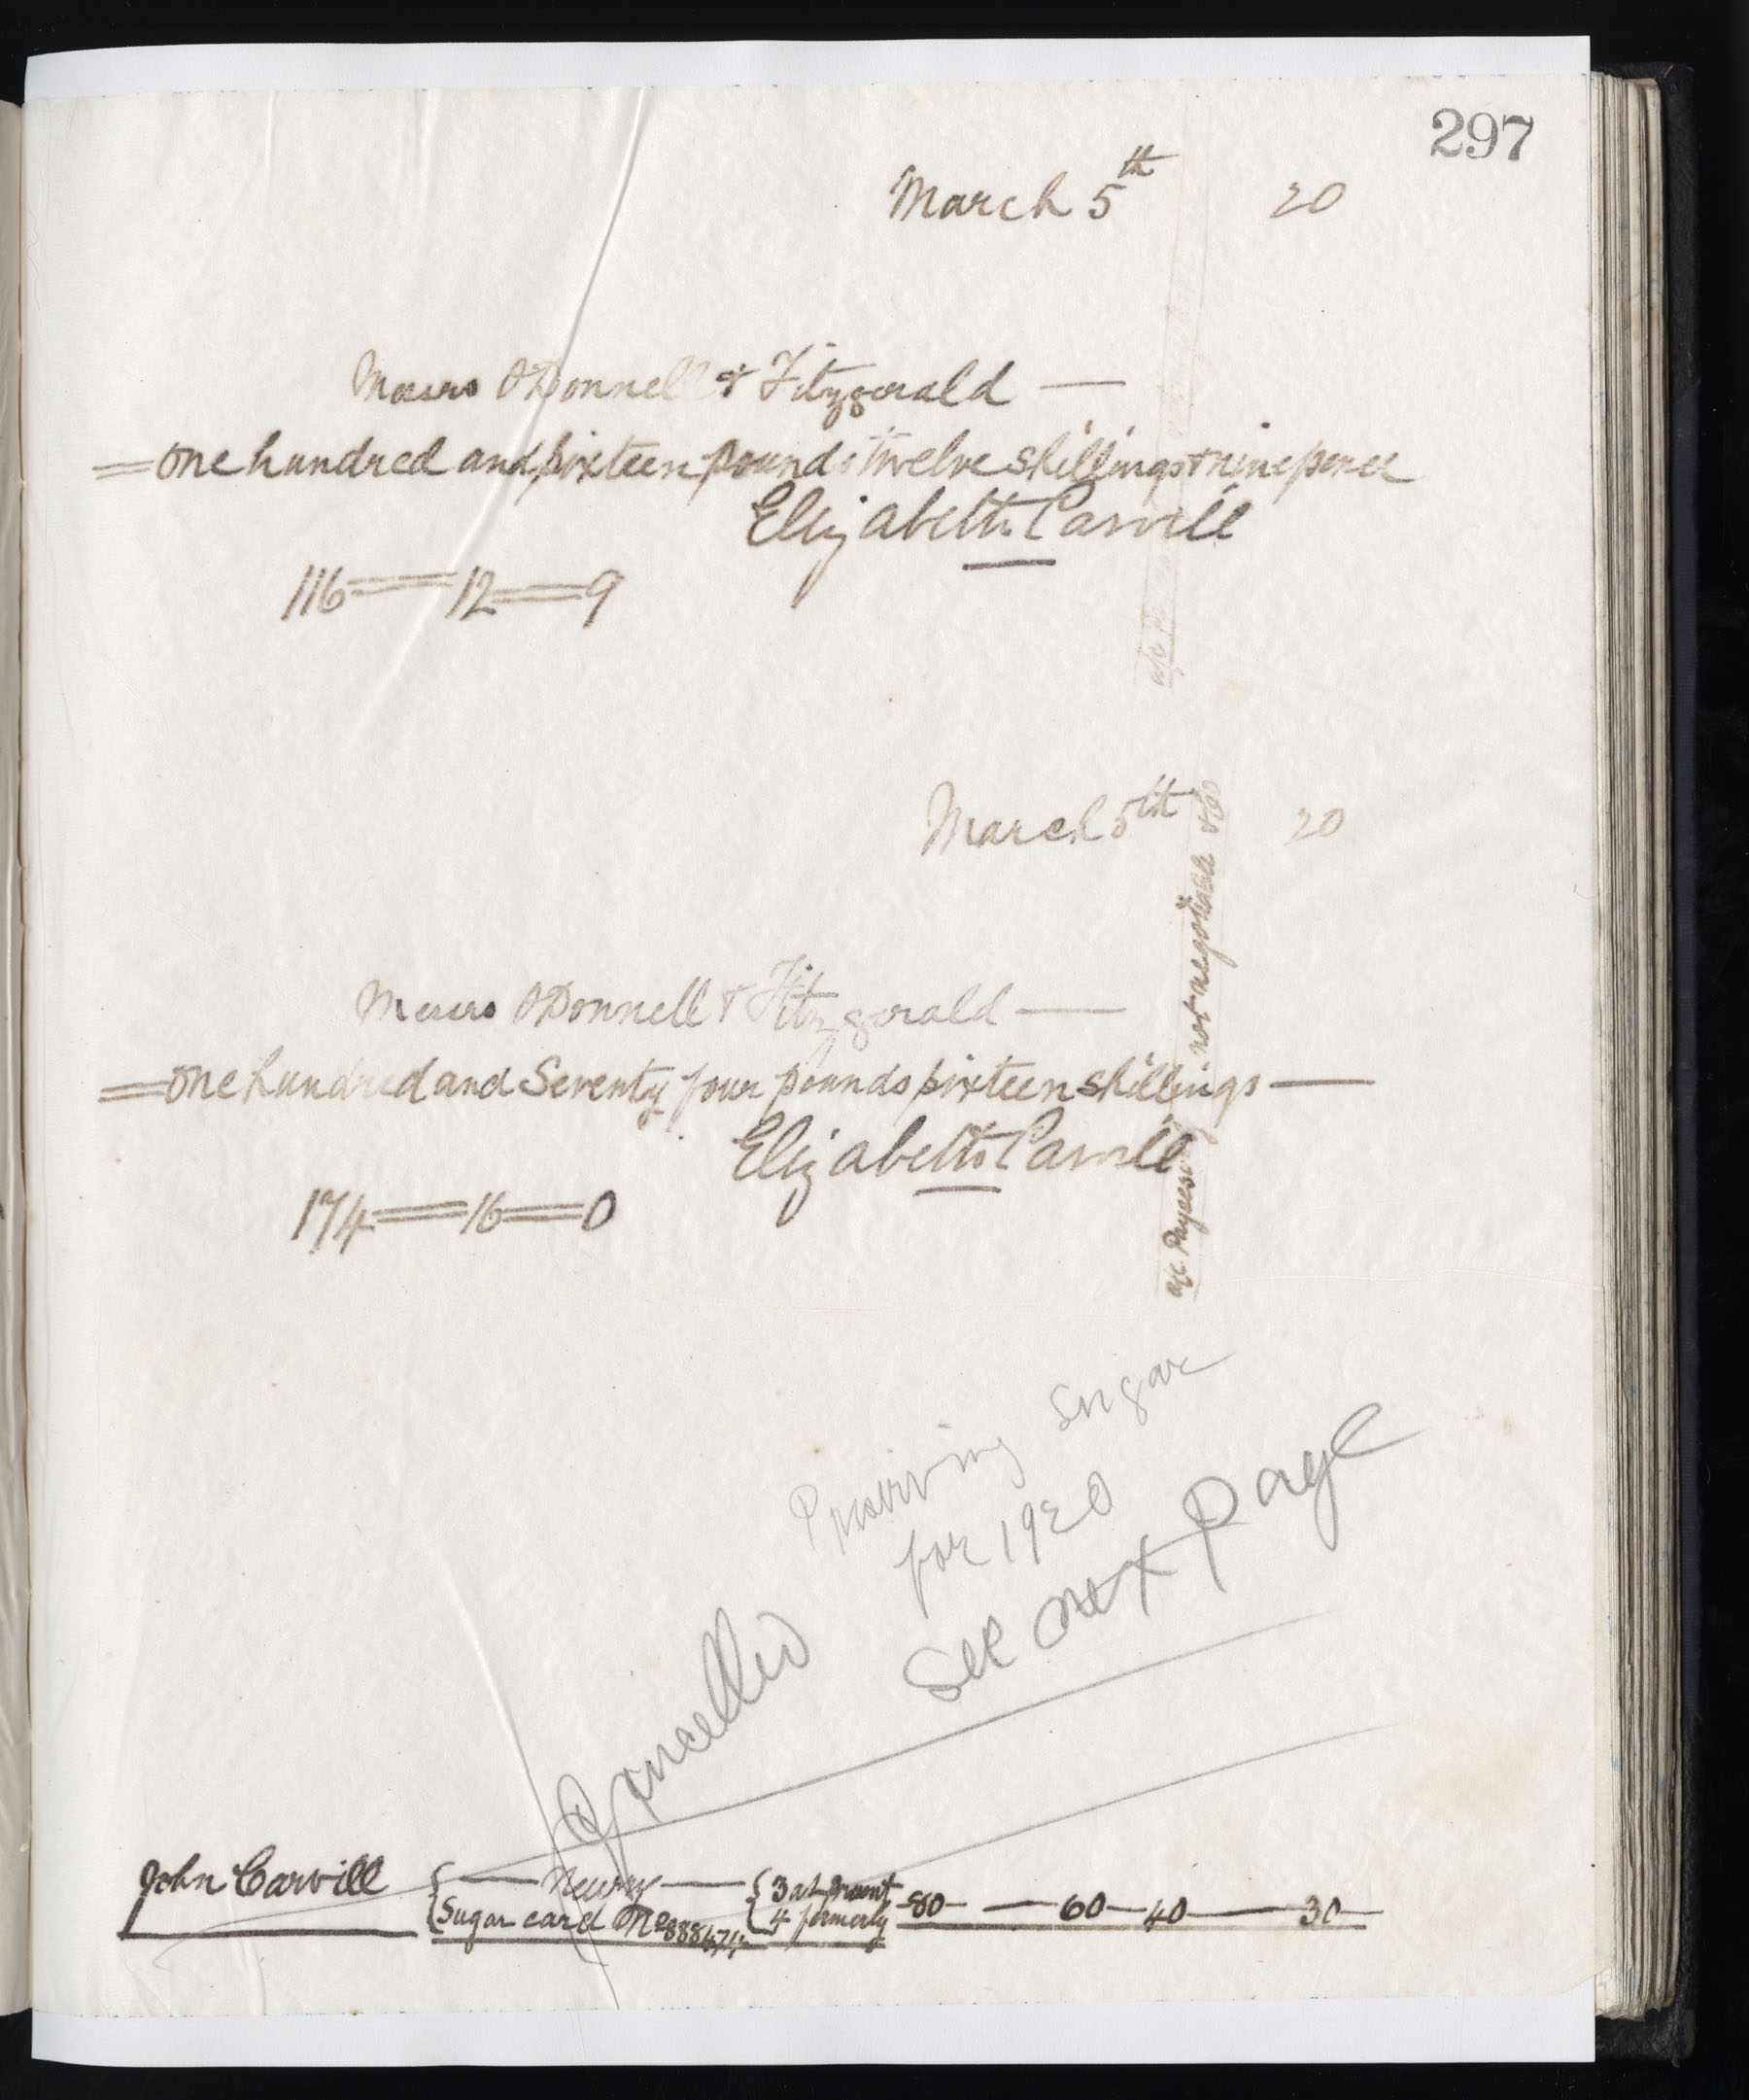 297
March 5th 20
Messrs O'Donnell & Fitzgerald —
= one hundred and sixteen pounds twelve shillings & nine pence
Elizabeth Carvill
116 = 12 = 9
March 5th 20
a/c Payees not negotiable &Co
Messrs O'Donnell & Fitzgerald —
= one hundred and Seventy four pounds sixteen shillings —
Elizabeth Carvill
174 = 16 = 0
Preserving Sugar
for 1920
See next page
Cancelled
John Carvill { — Newry — { 3 at present 80 — 60 — 40 — 30
{ Sugar card No { 4 formerly